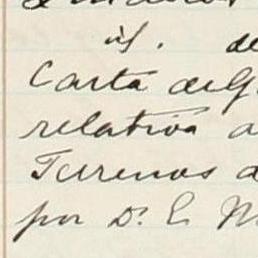 id. de
Carta del
relativa a
Terrenos
por D. E. M